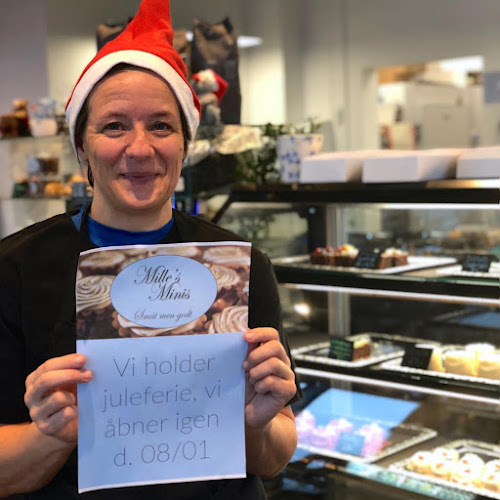 Mille's
Minis
Småt men godt
Vi holder
juleferie, vi
åbner igen
d. 08/01